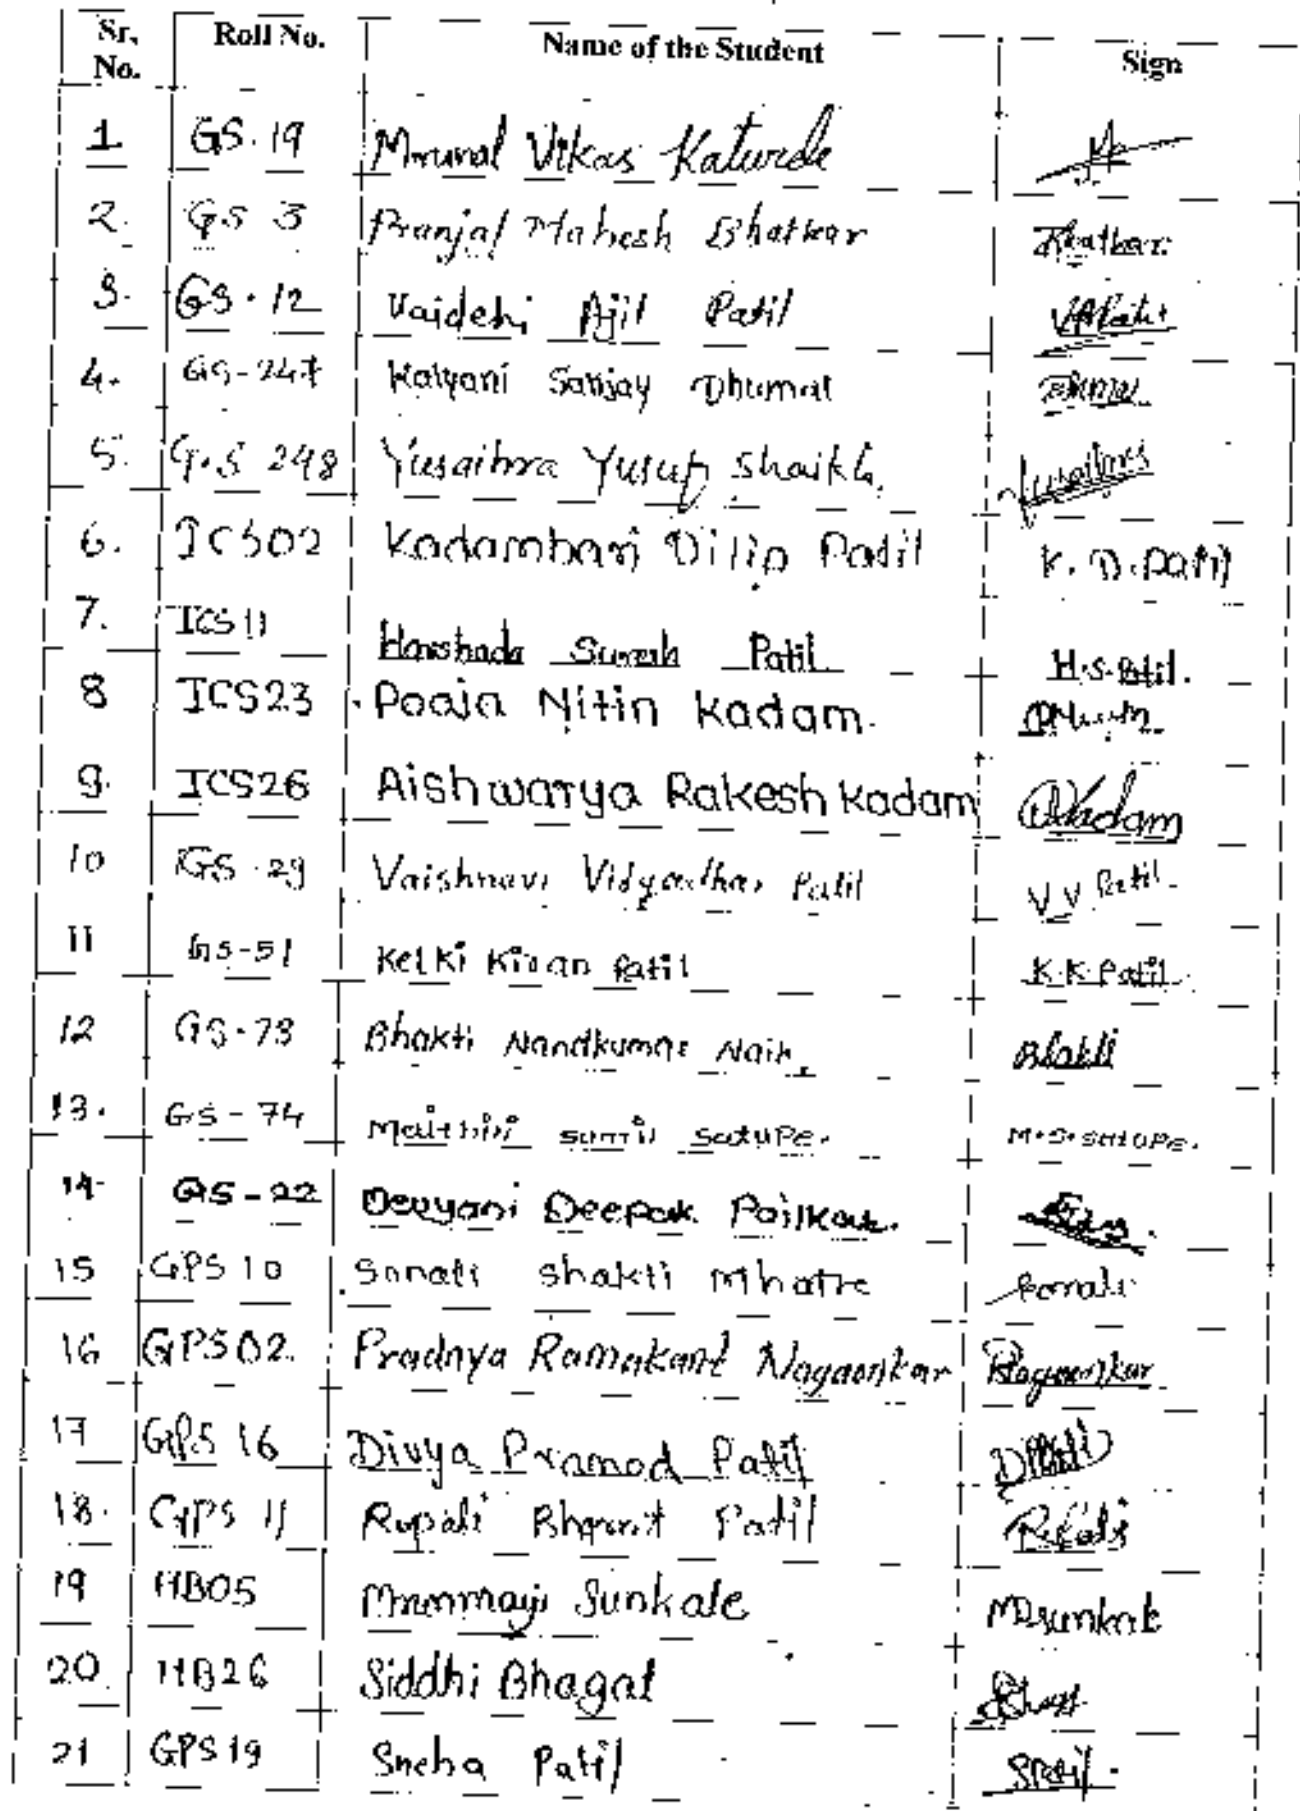 Sr. No. Roll No. Name of the Student Sign
1 GS.19 Mrunal Vikas Katurde
2. GS 3 Pranjal Mahesh Bhatkar Bhatkar
3. GS.12 Vaidehi Ajit Patil VAPatil
4. GS-247 Kalyani Sanjay Dhumal
5. G.S 248 Yusaibra Yusuf Shaikh
6. ICS02 Kadambari Dilip Patil K.D.Patil
7. ICS11 Harshada Suresh Patil H.S.Patil.
8 ICS23 Pooja Nitin Kadam.
9. ICS26 Aishwarya Rakesh Kadam Kadam
10 GS.29 Vaishnavi Vidyadhar Patil V V Patil
11 GS-51 Ketki Kiran Patil K.K.Patil
12 GS-73 Bhakti Nandkumar Naik Bhakti
13. GS-74 Maithili Sunil Satupe. M.S.Satupe.
14. GS-22 Devyani Deepak
15 GPS 10 Sonali Shakti Mhatre Sonali
16 GPS 02 Pradnya Ramakant Nagaonkar PNagaonkar
17 GPS 16 Divya Pramod Patil DPPatil
18. GPS 11 Rupali Bharat Patil
19 HB05 Mrunmayi Sunkale MDsunkale
20 HB26 Siddhi Bhagat
21 GPS 19 Sneha Patil SPatil.